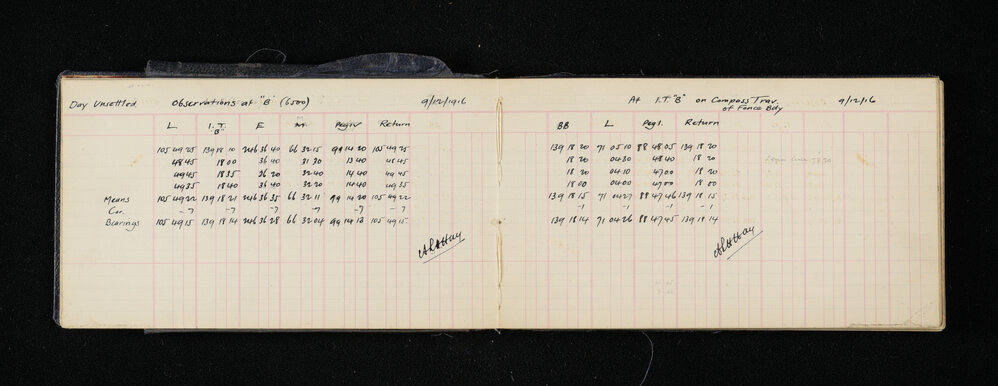 Day Unsettled Observations at "B" (6500) 9/12/1916
L I.T. "B" E M Pegiv Return
105 49 25 139 18 10 246 36 40 66 32 15 99 14 20 105 49 25
48 45 18 00 36 40 31 30 13 40 48 45
49 45 18 35 36 20 32 40 14 40 49 45
49 35 18 40 36 40 32 20 14 40 49 35
Means 105 49 22 139 18 21 246 36 35 66 32 11 99 14 20 105 49 22
Cor. -7 -7 -7 -7 -7 -7
Bearings 105 49 15 139 18 14 246 36 28 66 32 04 99 14 13 105 49 15
At I.T. "B" on Compass Trav. 9/12/16
of Fence Bdy
BB L Peg1. Return
139 18 20 71 05 10 88 48 05 139 18 20
18 20 04 30 48 40 18 20
18 20 04 10 47 00 18 20
18 00 04 00 47 00 18 00
139 18 15 71 04 27 88 47 46 139 18 15
-1 -1 -1 -1
139 18 14 71 04 26 88 47 45 139 18 14